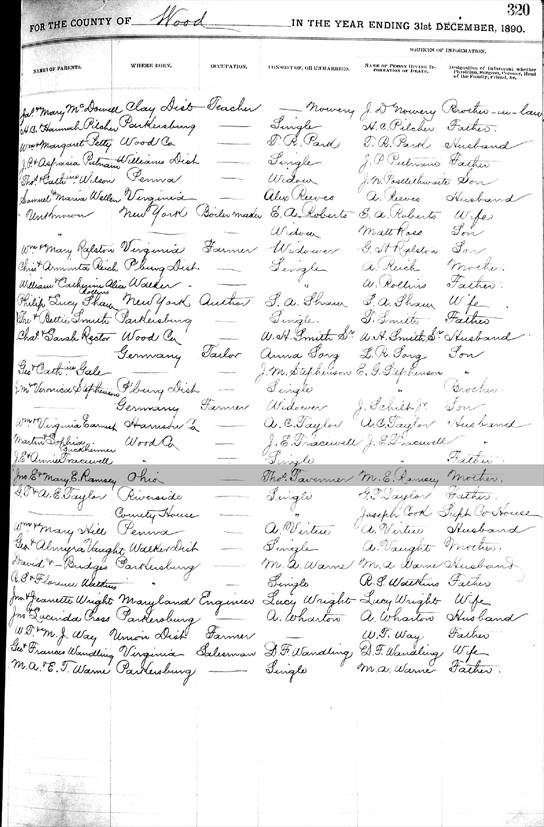 320
FOR THE COUNTY OF Wood IN THE YEAR ENDING 31st DECEMBER, 1890.
SOURCES OF INFORMATION.
NAMES OF PARENTS. WHERE BORN. OCCUPATION. CONSORT OF, OR UNMARRIED. NAME OF PERSON GIVING INFORMATION OF DEATH. Designation of Informant whether Physician, Surgeon, Coroner, Head of the Family, Friend, &c.
Jas. & Mary McDowell Clay Dist Teacher — Mowery J D Mowery Brother-in-law
H.C. & Hannah Pilcher Parkersburg — Single H.C. Pilcher Father.
Wm & Margaret Petty Wood Co — T. B. Park T. B. Park Husband
J.P. & Aspasia Putnam Williams Dist — Single J. P. Putnam Father
Thos. & Cath. Wilson Penna — Widow J. W. Postlethwaite Son
Samuel & Maria Virginia — Alex Reeves A. Reeves Husband
Unknown New York Boiler maker E. A. Roberts E. A. Roberts Wife
" — Widow Matt Ross Son
Wm & Mary Ralston Virginia Farmer Widower G. W Ralston Son
Chris & Arminta Reich P'burg Dist — Single A. Reich Mother.
William & Catherine Alice Rollins Walker — " W. Rollins Father.
Philip Lucy Shaw New York Auction S. A. Shaw S. A. Shaw Wife
& Bettie Smith Parkersburg — Single. Smith Father
Chas. & Sarah Rector Wood Co — W. H. Smith Sr W. H. Smith Sr Husband
Germany Tailor Anna Long L. R. Long Son
Geo & Cath Gale — J. M. Stephenson E. G. Stephenson "
J. M. & Vernica Stephenson P'burg Dist — Single " Brother
Germany Farmer Widower J. Schilt Jr Son
Wm & Virginia Harrison Co — A. C. Taylor A. C. Taylor Husband
Martin & Sophia Buckheimer Wood Co — J. E. Tracewell J. E. Tracewell "
J. E. & Annie Tracewell " — Single " Father
Jno. E. & Mary E. Ramsey Ohio — Thos. Taverner M. E. Ramsey Mother.
G. T. & A. E. Taylor Riverside — Single G. T. Taylor Father.
— County House — " Joseph Cook Supt Co House
Wm & Mary Hill Penna — A. Virtue A. Virtue Husband
Geo. & Almyra Vaught Walker Dist — Single A. Vaught Mother.
David & — Bridges Parkersburg — M. A. Warne M. A. Warne Husband
R. S. & Florence Watkins " — Single R. S. Watkins Father
Jno. & Jeanette Wright Maryland Engineer Lucy Wright Lucy Wright Wife
Jno & Lucinda Cross Parkersburg — A. Wharton A. Wharton Husband
W. T. & M. J. Way Union Dist Farmer W. T. Way Father
Geo. & Frances Wandling Virginia Salesman D. F. Wandling D. F. Wandling Wife
M. A. & E. T. Warne Parkersburg — Single M. A. Warne Father.